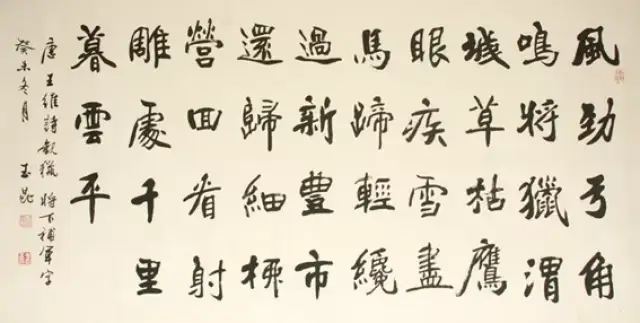 風勁弓角
鳴將獵渭
城草枯鷹
眼疾雪盡
馬蹄輕纔
過新豐市
還歸細柳
營回看射
雕處千里
暮雲平
唐王維詩觀獵 將下補軍字
癸未冬月